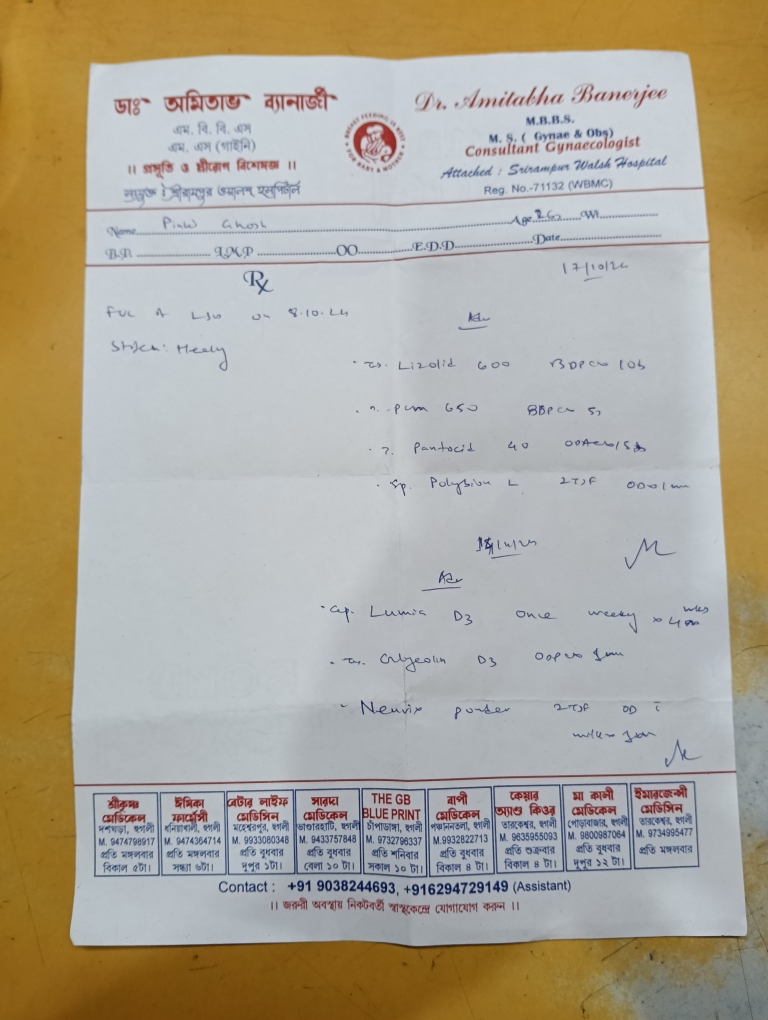 ডাঃ অমিতাভ ব্যানার্জী
এম. বি. বি. এস
এম. এস (গাইনি)
।। প্রসূতি ও স্ত্রীরোগ বিশেষজ্ঞ ।।
সংযুক্ত : শ্রীরামপুর ওয়ালশ হসপিটাল
BREAST FEEDING IS BEST
FOR BABY & MOTHER
Dr. Amitabha Banerjee
M.B.B.S.
M. S. ( Gynae & Obs)
Consultant Gynaecologist
Attached : Srirampur Walsh Hospital
Reg. No.-71132 (WBMC)
Name Ghosh Age 26 Wt.
B.P. L.M.P OO E.D.D Date
Rx
17/10/24
on 8.10.24
Healy
Adv
Lizolid 600 BDPC
pcm 650
Pantocid 40
Sp. Polybion L 2TSF
Adv
Cap. Lumia D3 once weekly
D3
powder 2TSF OD
শ্রীকৃষ্ণ মেডিকেল
দশঘড়া, হুগলী
M. 9474798917
প্রতি মঙ্গলবার
বিকাল ৫টা।
ঈশিকা ফার্মেসী
ধনিয়াখালী, হুগলী
M. 9474364714
প্রতি মঙ্গলবার
সন্ধ্যা ৬টা।
বেটার লাইফ মেডিসিন
মহেশ্বরপুর, হুগলী
M. 9933080348
প্রতি বুধবার
দুপুর ১টা।
সারদা মেডিকেল
ভাণ্ডারহাটি, হুগলী
M. 9433757848
প্রতি বুধবার
বেলা ১০ টা।
THE GB BLUE PRINT
চাঁপাডাঙ্গা, হুগলী
M. 9732796337
প্রতি শনিবার
সকাল ১০ টা।
বাপী মেডিকেল
পঞ্চাননতলা, হুগলী
M.9932822713
প্রতি বুধবার
বিকাল ৪ টা।
কেয়ার অ্যান্ড কিওর
তারকেশ্বর, হুগলী
M. 9635955093
প্রতি শুক্রবার
বিকাল ৪ টা।
মা কালী মেডিকেল
পোড়াবাজার, হুগলী
M. 9800987064
প্রতি বুধবার
দুপুর ১২ টা।
ইমারজেন্সী মেডিসিন
তারকেশ্বর, হুগলী
M. 9734995477
প্রতি মঙ্গলবার
Contact : +91 9038244693, +916294729149 (Assistant)
।। জরুরী অবস্থায় নিকটবর্তী স্বাস্থ্যকেন্দ্রে যোগাযোগ করুন ।।